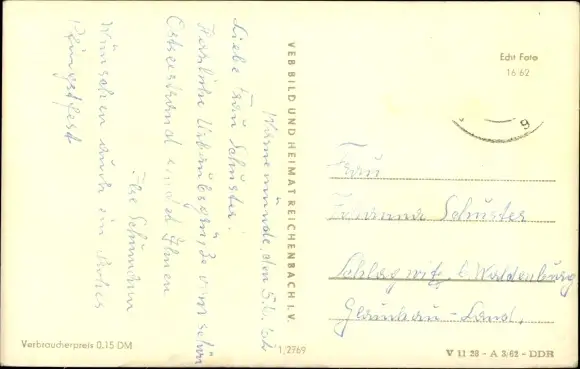 Warnemünde, den 5.6.62
Liebe Frau Schuster!
Herzliche Urlaubsgrüße vom schön
Ostseestrand sendet Ihnen
Ilse Schumann
Wünschen auch ein frohes
Pfingstfest
VEB BILD UND HEIMAT REICHENBACH I. V.
Echt Foto
16/62
9
Frau
Johanna Schuster
Schlagwitz b. Waldenburg
Glauchau-Land.
Verbraucherpreis 0,15 DM
1/2969
V 11 28 - A 3/62 - DDR